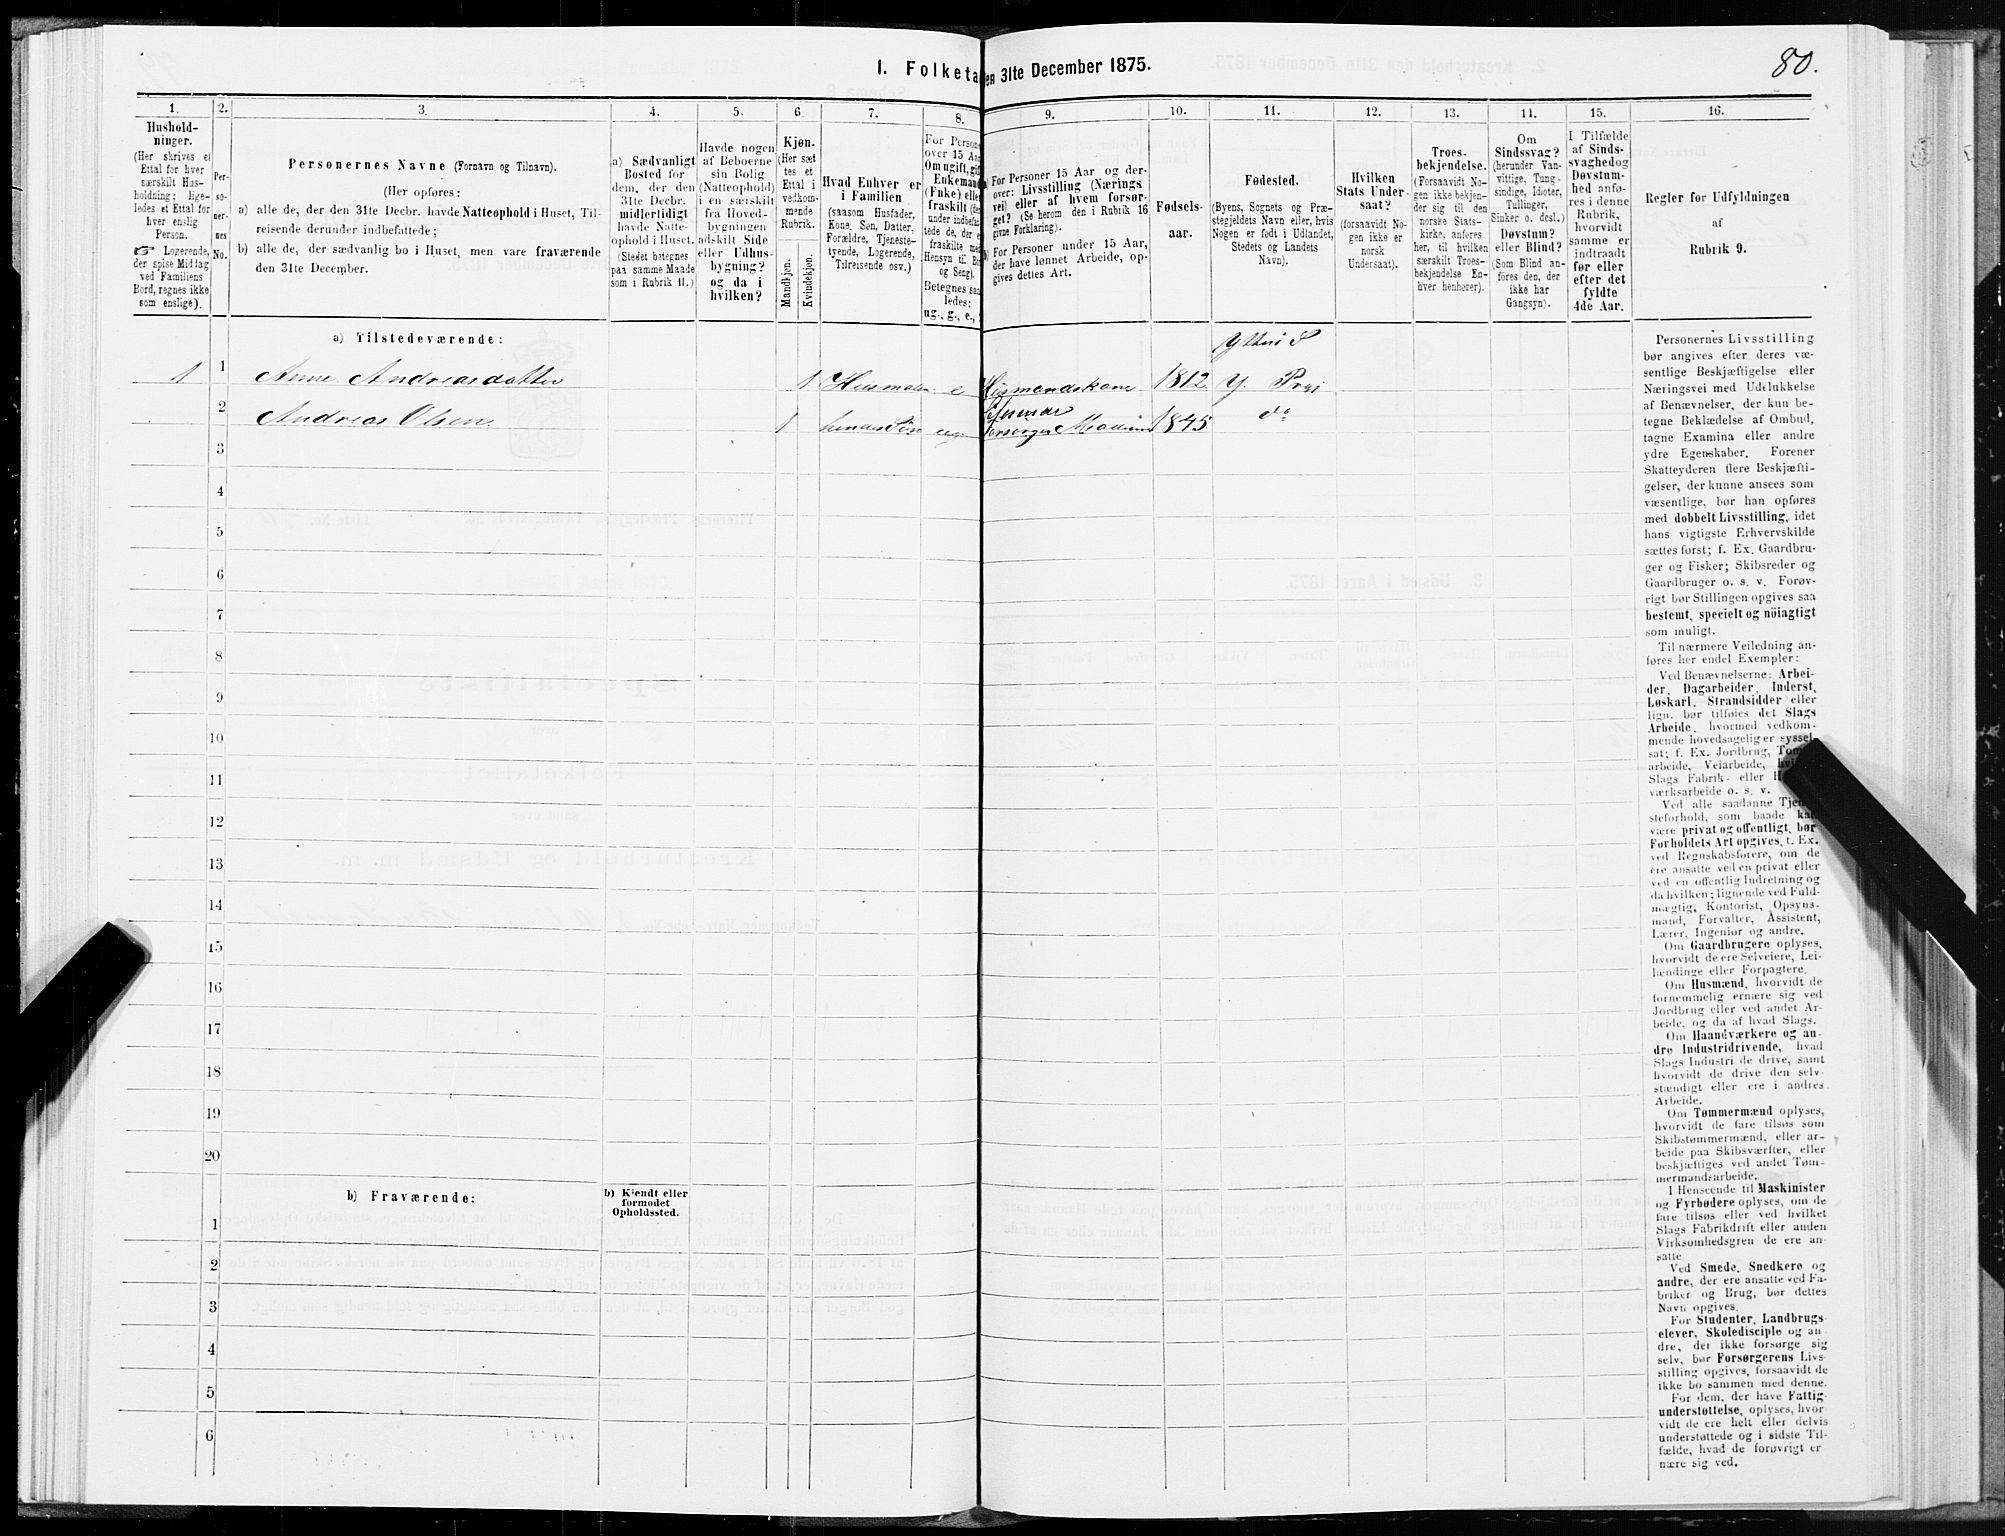 1. Folketa en 31te December 1875.
80.
1. 2. 3. 4. 5. 6. 7. 8. 9. 10. 11. 12. 13. 14. 15. 16.
Hushold-
ninger.
(Her skrives et
Ettal for hver
særskilt Hus-
holdning; lige-
ledes et Ettal for
hver enslig
Person.
☞ Logerende,
der spise Middag
ved Familiens
Bord, regnes ikke
som enslige).
Per-
so-
ner-
nes
No.
Personernes Navne (Fornavn og Tilnavn).
(Her opføres:
a) alle de, der den 31te Decbr. havde Natteophold i Huset, Til-
reisende derunder indbefattede;
b) alle de, der sædvanlig bo i Huset, men vare fraværende
den 31te December.
a) Sædvanligt
Bosted for
dem, der den
31te Decbr.
midlertidigt
havde Natte-
ophold i Huset.
(Stedet betegnes
paa samme Maade
som i Rubrik 11.)
Havde nogen
af Beboerne
sin Bolig
(Natteophold)
i en særskilt
fra Hoved-
bygningen
adskilt Side
eller Udhus-
bygning?
og da i
hvilken?
Kjøn.
(Her sæt-
tes et
Ettal i
vedkom-
mende
Rubrik.
Mandkjøn.
Kvindekjøn.
Hvad Enhver er
i Familien
(saasom Husfader,
Kone, Søn, Datter,
Forældre, Tjeneste-
tyende, Logerende,
Tilreisende osv.)
For Persone
over 15 Aa
Om ugift, gift
Enkemand
(Enke) elle
fraskilt (der
under indbefat
tede de, der e
fraskilte med
Hensyn til Bo
og Seng).
Betegnes saa
ledes:
ug., g., e.,
a) For Personer 15 Aar og der-
over: Livsstilling (Nærings-
vei) eller af hvem forsør-
get? (Se herom den i Rubrik 16
givne Forklaring).
b) For Personer under 15 Aar,
der have lønnet Arbeide, op-
gives dettes Art.
Fødsels-
aar.
Fødested.
(Byens, Sognets og Præ-
stegjeldets Navn eller, hvis
Nogen er født i Udlandet,
Stedets og Landets
Navn).
Hvilken
Stats Under-
saat?
(forsaavidt No-
gen ikke er
norsk
Undersaat).
Troes-
bekjendelse.
(Forsaavidt No-
gen ikke bekjen-
der sig til den
norske Stats-
kirke, anføres
her, til hvilken
særskilt Troes-
bekjendelse En-
hver henhører).
Om
Sindssvag?
(herunder Van-
vittige, Tung-
sindige, Idioter,
Tullinger,
Sinker o. desl.)
Døvstum?
eller Blind?
(Som Blind an-
føres den, der
ikke har
Gangsyn).
I Tilfælde
af Sinds-
svaghed og
Døvstum-
hed anfø-
res i denne
Rubrik,
hvorvidt
samme er
indtraadt
før eller
efter det
fyldte
4de Aar.
Regler for Udfyldningen
af
Rubrik 9.
a) Tilstedeværende:
Yttri S
1 1 Anne Andreasdatter 1 e Husmandskone 1812 Y. Præs
2 Andreas Olsen 1 hendes Søn ug. 1845 do
3
4
5
6
7
8
9
10
11
12
13
14
15
16
17
18
19
20
b) Fraværende:
b) Kjendt eller
formodet
Opholdssted.
1
2
3
4
5
6
Personernes Livsstilling
bør angives efter deres væ-
sentlige Beskjæftigelse eller
Næringsvei med Udelukkelse
af Benævnelser, der kun be-
tegne Beklædelse af Ombud,
tagne Examina eller andre
ydre Egenskaber. Forener
Skatteyderen flere Beskjæfti-
gelser, der kunne ansees som
væsentlige, bør han opføres
med dobbelt Livsstilling, idet
hans vigtigste Erhvervskilde
sættes først; f. Ex. Gaardbru-
ger og Fisker; Skibsreder og
Gaardbruger o. s. v. Forøv-
rigt bør Stillingen opgives saa
bestemt, specielt og nöiagtigt
som muligt.
Til nærmere Veiledning an-
føres her endel Exempler:
Ved Benævnelserne: Arbei-
der, Dagarbeider, Inderst,
Løskarl, Strandsidder eller
lign. bør tilføies det Slags
Arbeide, hvormed vedkom-
mende hovedsagelig er syssel-
sat; f. Ex. Jordbrug, Tom
arbeide, Veiarbeide,
Slags Fabrik- eller
værksarbeide o. s. v.
Ved alle saadanne Tjene-
steforhold, som baade kan
være privat og offentligt, bør
Forholdets Art opgives, f. Ex.
ved Regnskabsførere, om de
ere ansatte ved en privat eller
ved en offentlig Indretning og
da hvilken; lignende ved Fuld-
mægtig, Kontorist, Opsyns-
mand, Forvalter, Assistent,
Lærer, Ingeniør og andre.
Om Gaardbrugere oplyses,
hvorvidt de ere Selveiere, Lei-
lændinge eller Forpagtere.
Om Husmænd, hvorvidt de
fornemmelig ernære sig ved
Jordbrug eller ved andet Ar-
beide, og da af hvad Slags.
Om Haandværkere og an-
dre Industridrivende, hvad
Slags Industri de drive, samt
hvorvidt de drive den selv-
stændigt eller ere i andres
Arbeide.
Om Tømmermænd oplyses,
hvorvidt de fare tilsøs som
Skibstømmermænd, eller ar-
beide paa Skibsværfter, eller
beskjæftiges ved andet Tøm-
mermandsarbeide.
I Henseende til Maskinister
og Fyrbødere oplyses, om de
fare tilsøs eller ved hvilket
Slags Fabrikdrift eller anden
Virksomhedsgren de ere an-
satte.
Ved Smede, Snedkere og
andre, der ere ansatte ved Fa-
briker og Brug, bør dettes
Navn opgives.
For Studenter, Landbrugs-
elever, Skoledisciple og an-
dre, der ikke forsørge sig
selv, bør Forsørgerens Livs-
stilling opgives, forsaavidt de
ikke bo sammen med denne.
For dem, der have Fattig-
understøttelse, oplyses, hvor-
vidt de ere helt eller delvis
understøttede og i sidste Til-
fælde, hvad de forøvrigt er
nære sig ved.